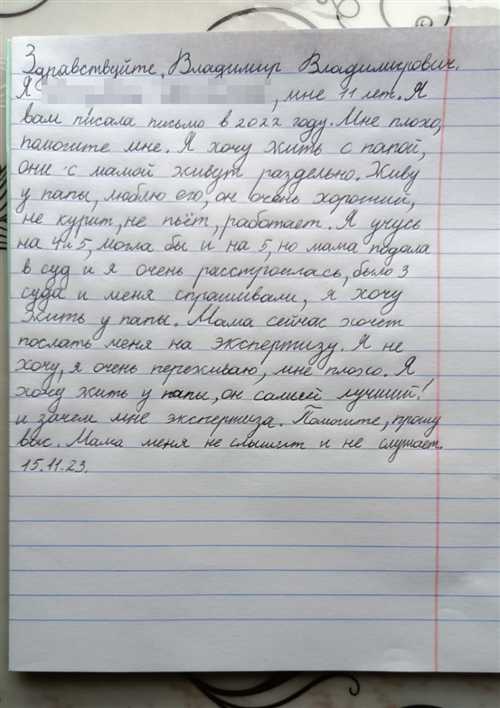 Здравствуйте, Владимир Владимирович.
Я , мне 11 лет. Я
вам писала письмо в 2022 году. Мне плохо,
помогите мне. Я хочу жить с папой,
они с мамой живут раздельно. Живу
у папы, люблю его, он очень хороший,
не курит, не пьёт, работает. Я учусь
на 4и5, могла бы и на 5, но мама подала
в суд и я очень расстроилась, было 3
суда и меня спрашивали, я хочу
жить у папы. Мама сейчас хочет
послать меня на экспертизу. Я не
хочу, я очень переживаю, мне плохо. Я
хочу жить у папы, он самый лучший!
и зачем мне экспертиза. Помогите, прошу
вас. Мама меня не слышит и не слушает.
15.11.23.